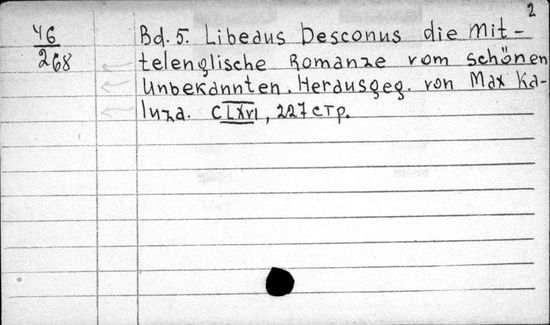 2
46
268
Bd. 5. Libeaus Desconus die Mit-
telenglische Romanze vom schönen
Unbekannten. Herausgeg. von Max Ka-
luza. CLXVI, 227 стр.